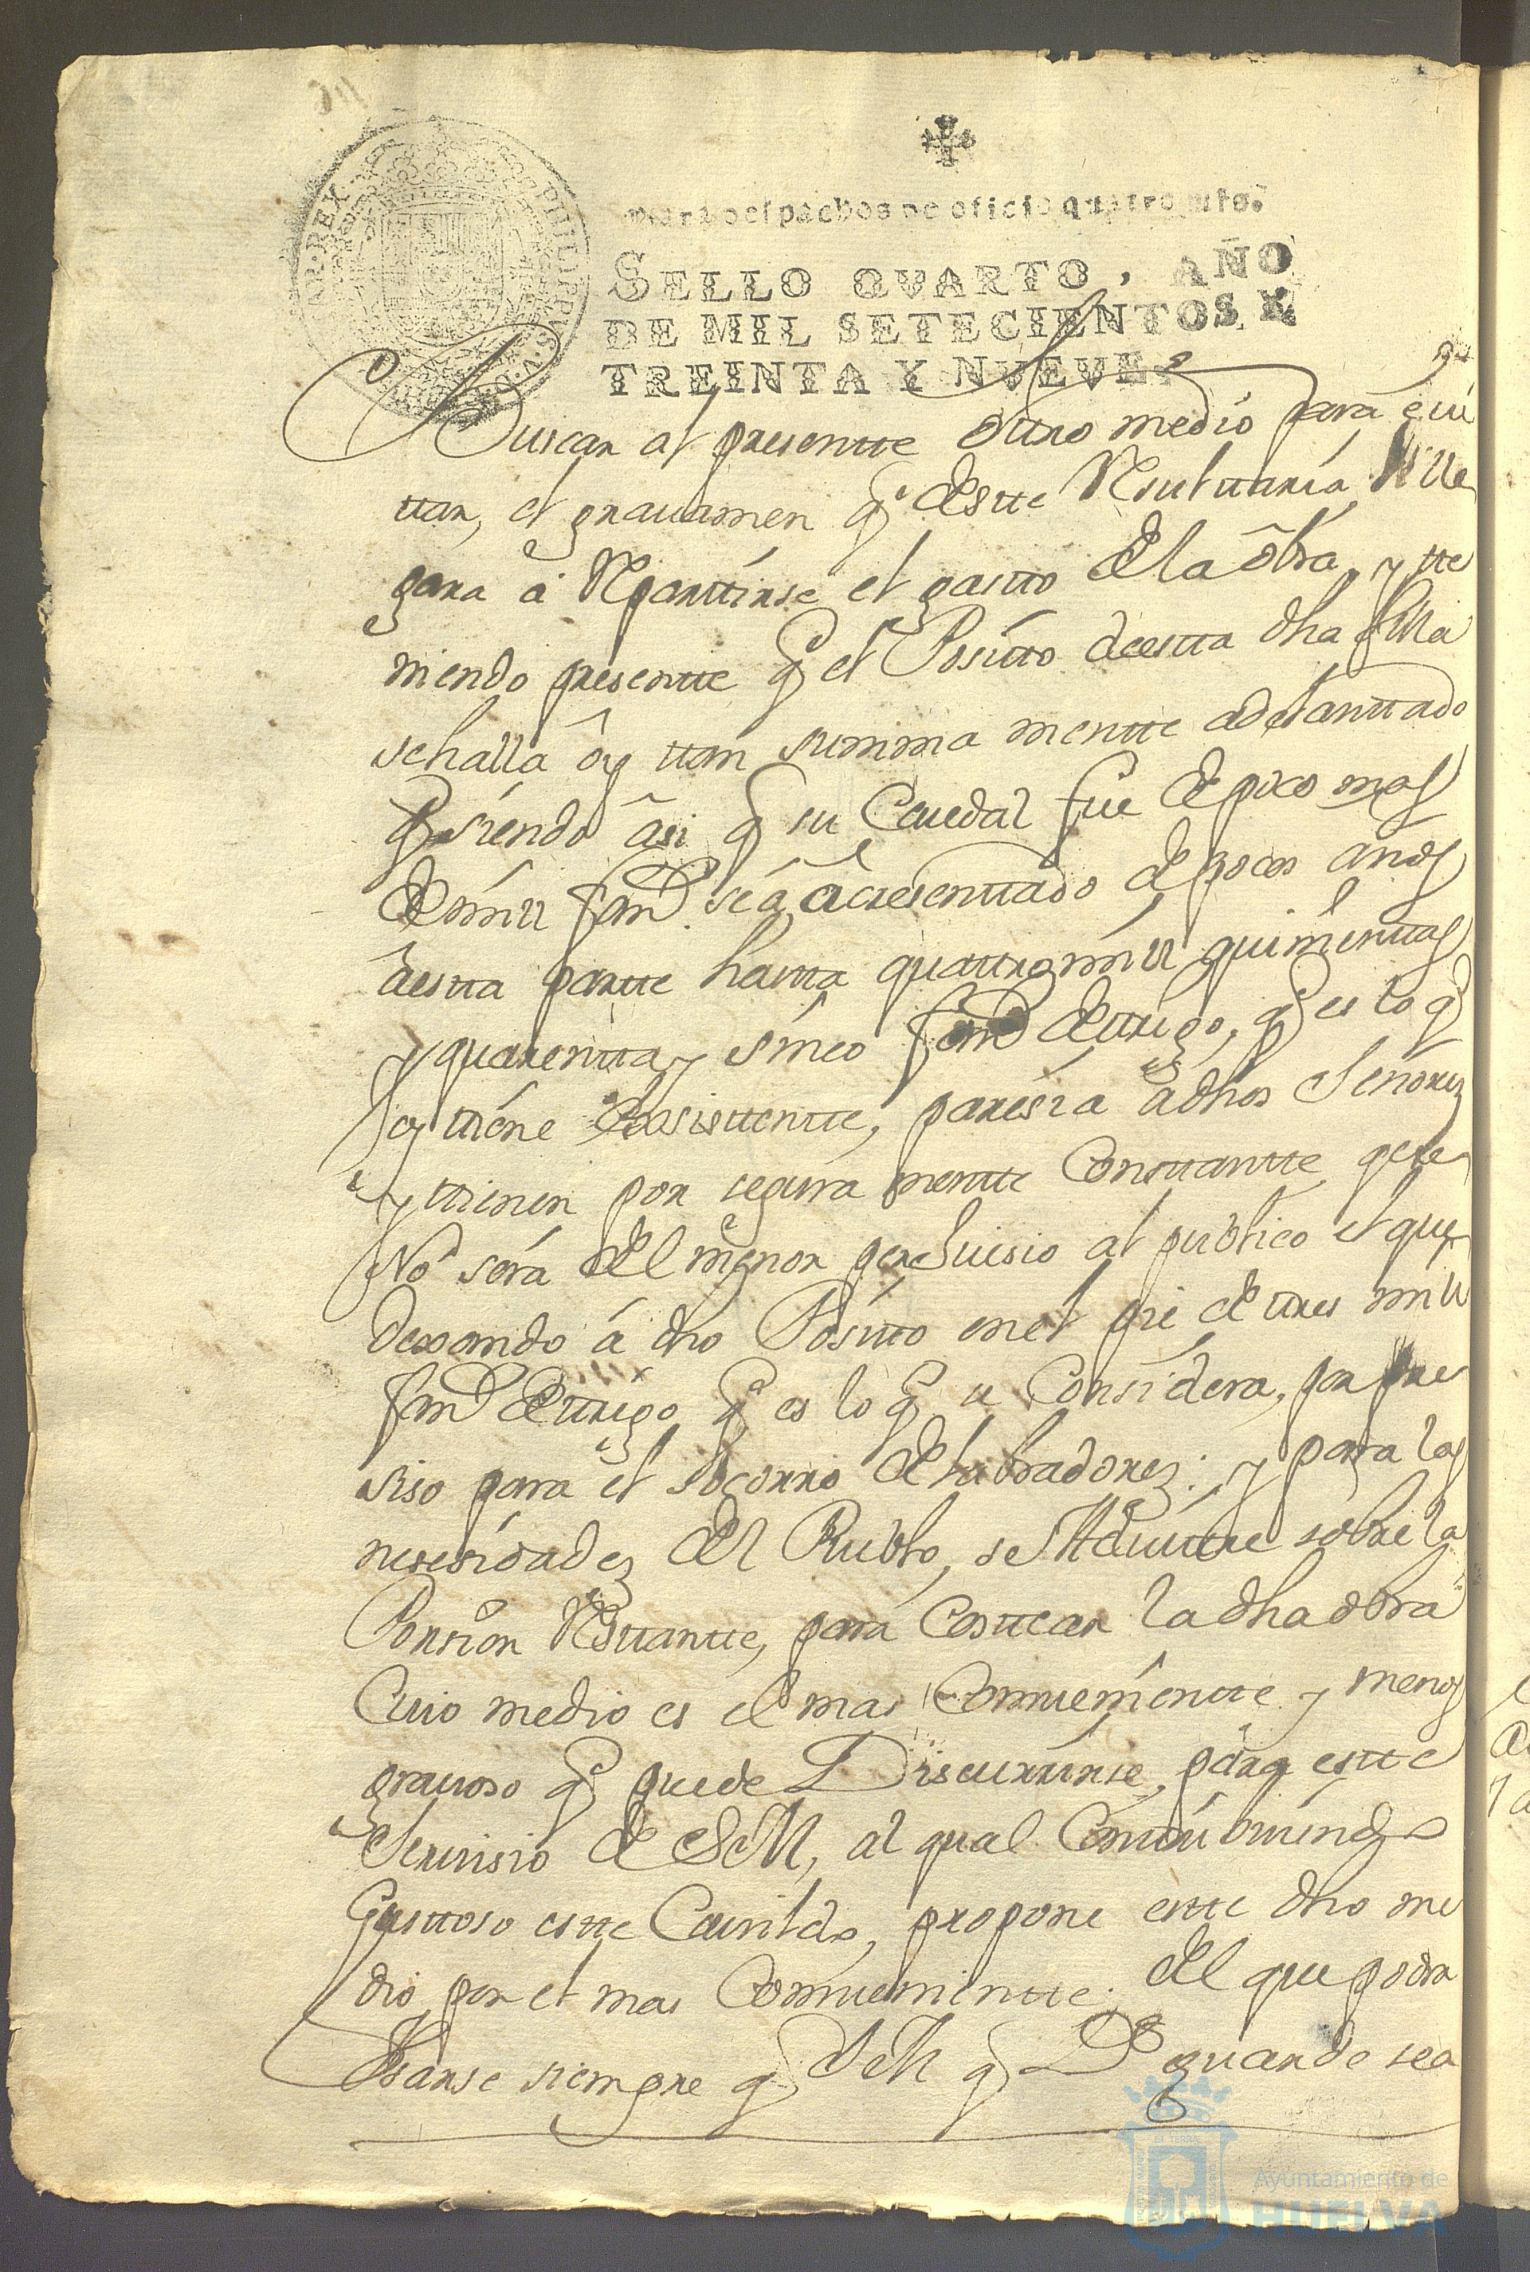 PHILIPPVS V D G HISP REX
Para despachos de oficio quatro mrs.
SELLO QVARTO, AÑO
DE MIL SETECIENTOS Y
TREINTA Y NVEVE.
Buscar al presentte ottro medio para evi
ttar, el gravamen q̃ de estte Resulttaria, si lle
gara â Reparttirse el gastto de la ôbra, y tte
niendo presentte q̃ el Positto de estta dha Villa
se halla ôy ttan summa mentte adelanttado
q̃ siendo âsi q̃ su Caudal fue de poco mas
de mill fan.s se â âcresenttado de pocos años
âestta partte hastta quattro mill quinienttas
y quarentta y sinco fan.s de ttrigo, q̃ es lo q̃
oy ttiene Exsisttentte, paresia âdhos Señores
y ttienen por segura mentte Consttantte que
No será del menor perjuisio al publico el que
Dexando â dho Positto en el pie de ttres mill
fan.s de ttrigo q̃ es lo q̃ se Considera, por pre
siso para el socorro de labradores; y para las
nesesidades del Publo, se Advittre sobre la
Porsion Resttantte, para Costtear la dha obra
Cuio medio es el mas Combenientte y menos
gravoso q̃ puede Discurrirse, para estte
Servisio de S M, al qual Conttribuiendo
Gusttoso estte Cavildo, propone estte dho me
dio por el mas Combenientte; del que podra
Vsarse siempre q̃ S M q̃ D.s guarde sea
Ayuntamiento de
HUELVA